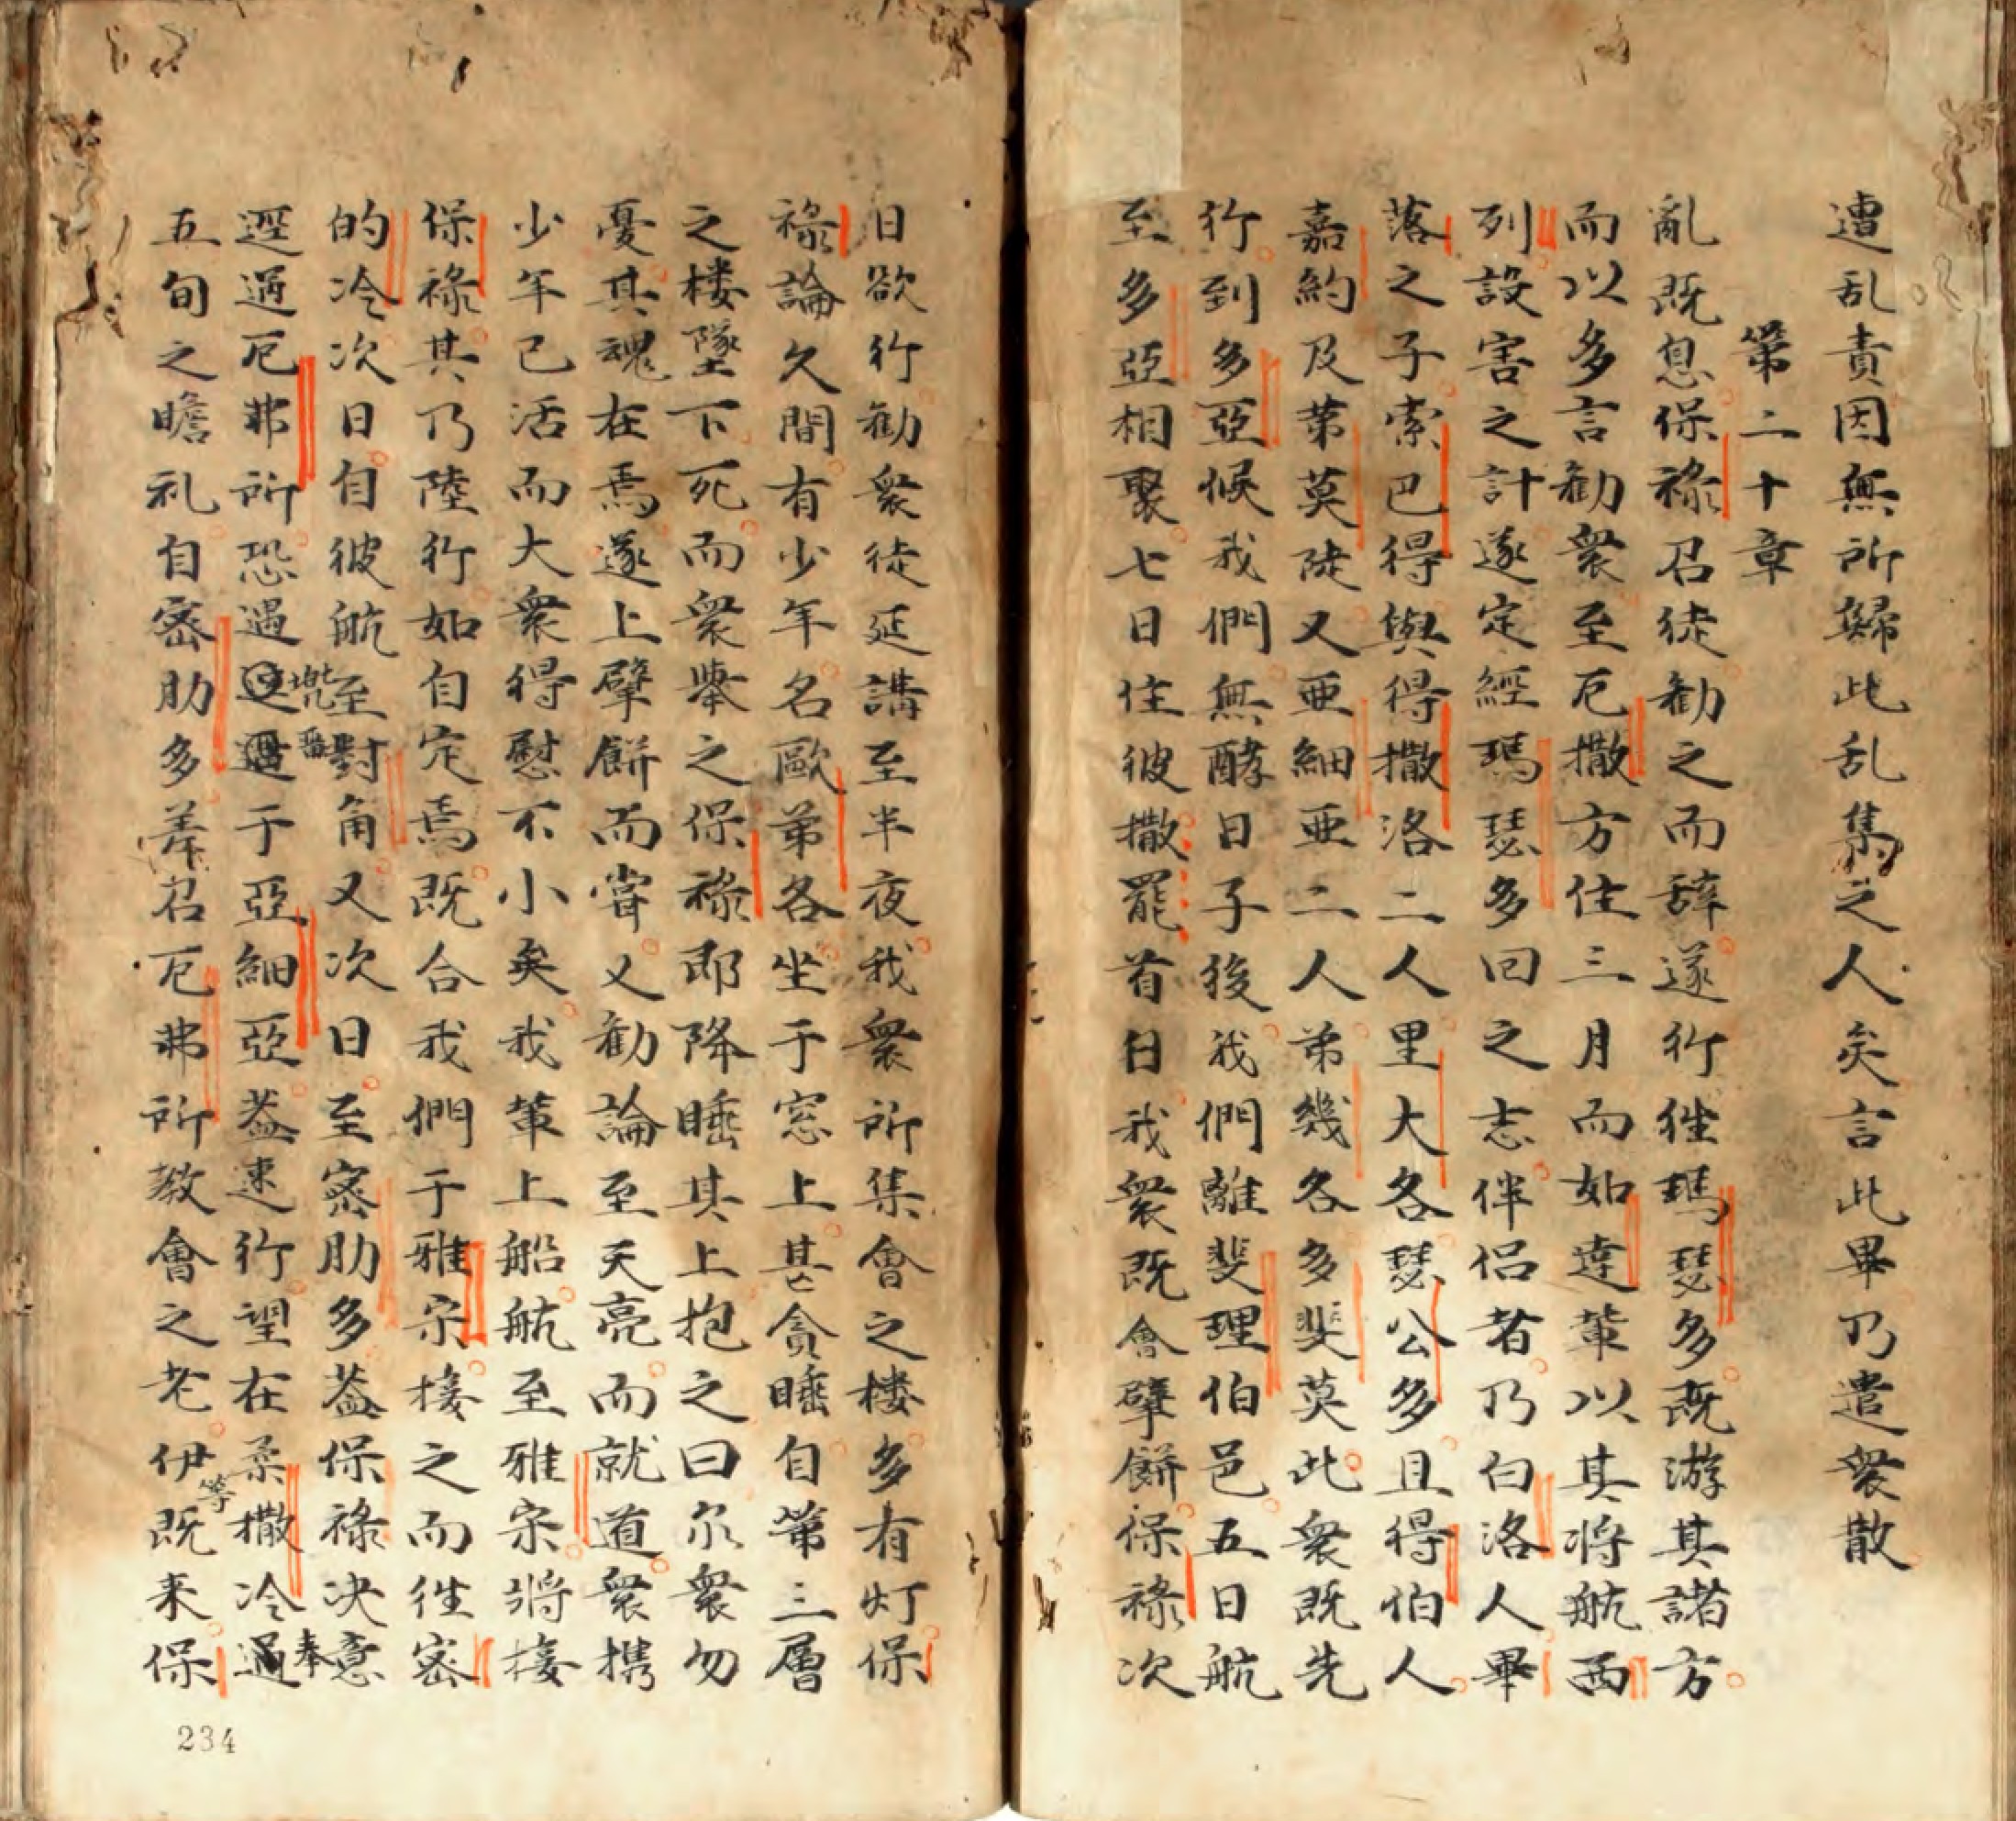 遭乱責因無所歸此乱集之人矣言此畢乃遣衆散
第二十章
亂既息保祿召徒勸之而辞遂行徃瑪瑟多既游其諸方
而以多言勸衆至厄撒方住三月而如達輩以其将航西
列設害之計遂定經瑪瑟多回之志伴侣者乃白洛人畢
落之子索巴得與得撒洛二人里大各瑟公多且得伯人
嘉約及第莫陡又亜細亜二人弟幾各多斐莫此衆既先
行到多亞候我們無酵日子後我們離斐理伯邑五日航
至多亞相聚七日住彼撒罷首日我衆既會擘餅保祿次
日欲行勸衆徒延講至半夜我衆所集會之楼多有灯保
祿論久間有少年名歐第各坐于窓上甚貪睡自第三層
之楼墜下死而衆舉之保祿即降睡其上抱之曰尔衆勿
憂其魂在焉遂上擘餅而嘗又勸論至天亮而就道衆携
少年已活而大衆得慰不小矣我輩上船航至雅宗将接
保祿其乃陸行如自定焉既合我們于雅宗接之而徃宻
的冷次日自彼航至對角又次日至宻肋多葢保祿决意
逕過厄弗所恐遇于亞細亞葢速行望在柔撒冷過
五旬之瞻礼自宻肋多差召厄弗所教會之老伊等既来保
234